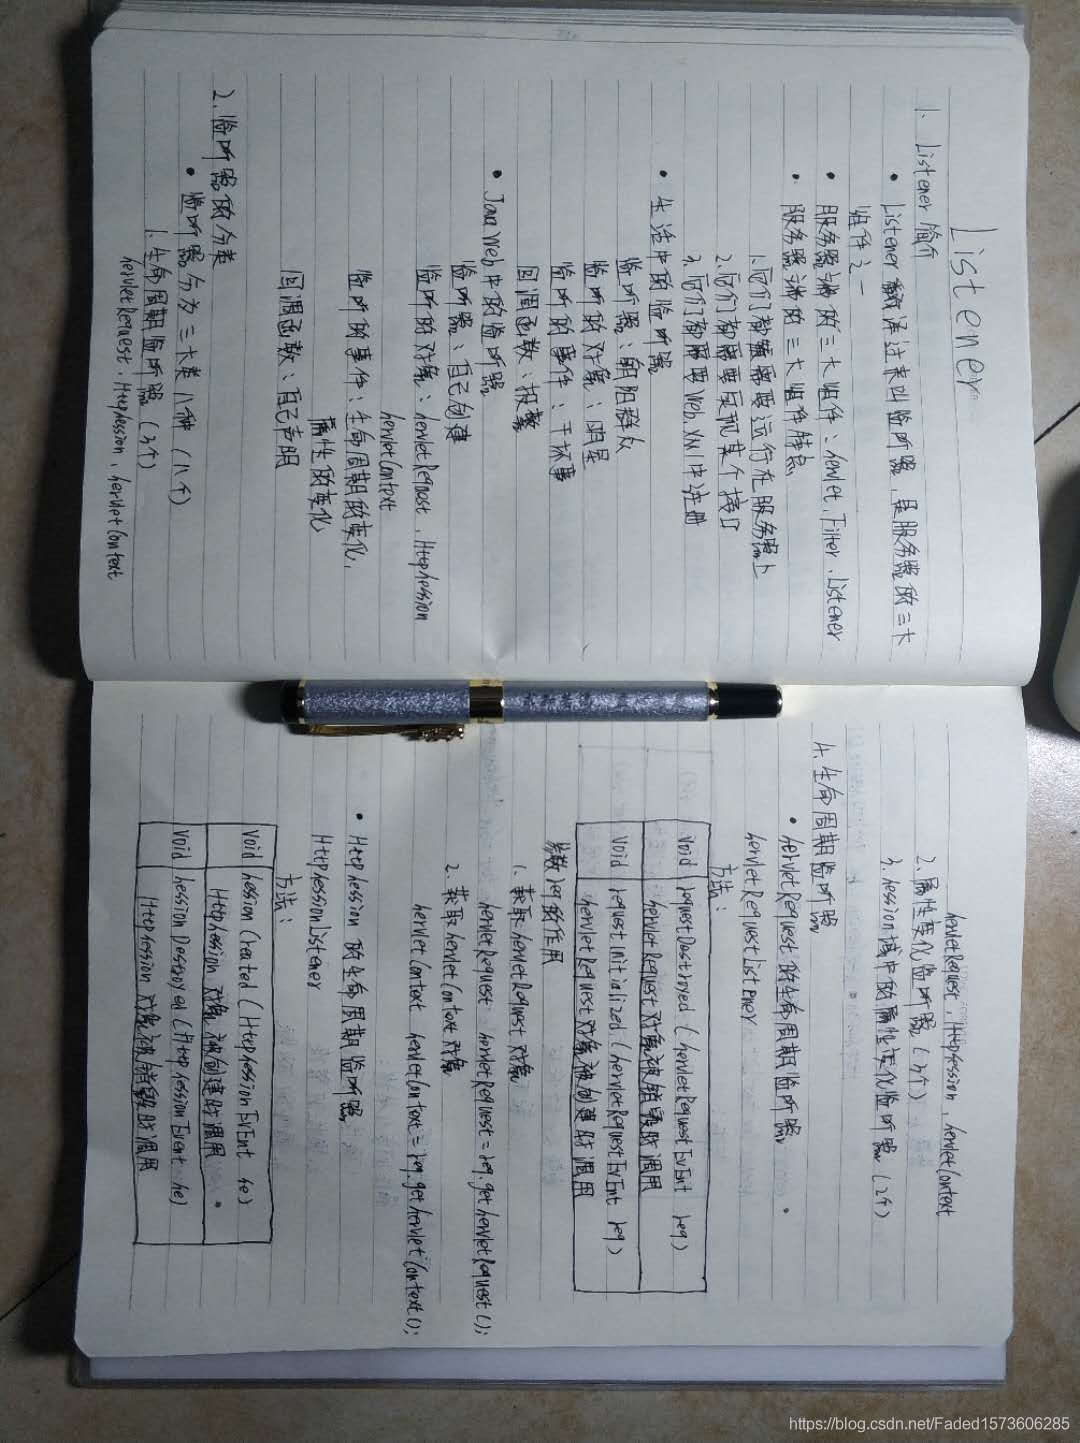 Listener
1. Listener简介
• Listener翻译过来叫监听器,是服务器的三大
组件之一
• 服务器端的三大组件:Servlet,Filter,Listener
• 服务器端的三大组件特点
1.它们都需要运行在服务器上
2.它们都需要实现某个接口
3.它们都需要Web.xml中注册
• 生活中的监听器
监听器:朝阳群众
监听的对象:明星
监听的事件:干坏事
回调函数:报警
• JavaWeb中的监听器
监听器:自己创建
监听的对象:ServletRequest,HttpSession
ServletContext
监听的事件:生命周期的变化,
属性的变化
回调函数:自己声明
2.监听器的分类
• 监听器分为三大类八种(八个)
1.生命周期监听器(3个)
ServletRequest,HttpSession,ServletContext
ServletRequest,HttpSession,ServletContext
2.属性变化监听器(3个)
3.Session域中的属性变化监听器(2个)
4.生命周期监听器
• ServletRequest的生命周期监听器
ServletRequestListener
方法:
Void requestDestroyed(ServletRequestEvent req)
ServletRequest对象被销毁时调用
Void requestInitialized(ServletRequestEvent req)
ServletRequest对象被创建时调用
参数req的作用
1.获取ServletRequest对象
ServletRequest servletRequest=req.getServletRequest();
2.获取ServletContext对象
ServletContext servletContext=req.getServletContext();
• HttpSession的生命周期监听器
HttpSessionListener
方法:
Void SessionCreated(HttpSessionEvent se)
HttpSession对象被创建时调用
Void SessionDestroyed(HttpSessionEvent se)
HttpSession对象被销毁时调用
https://blog.csdn.net/Faded1573606285